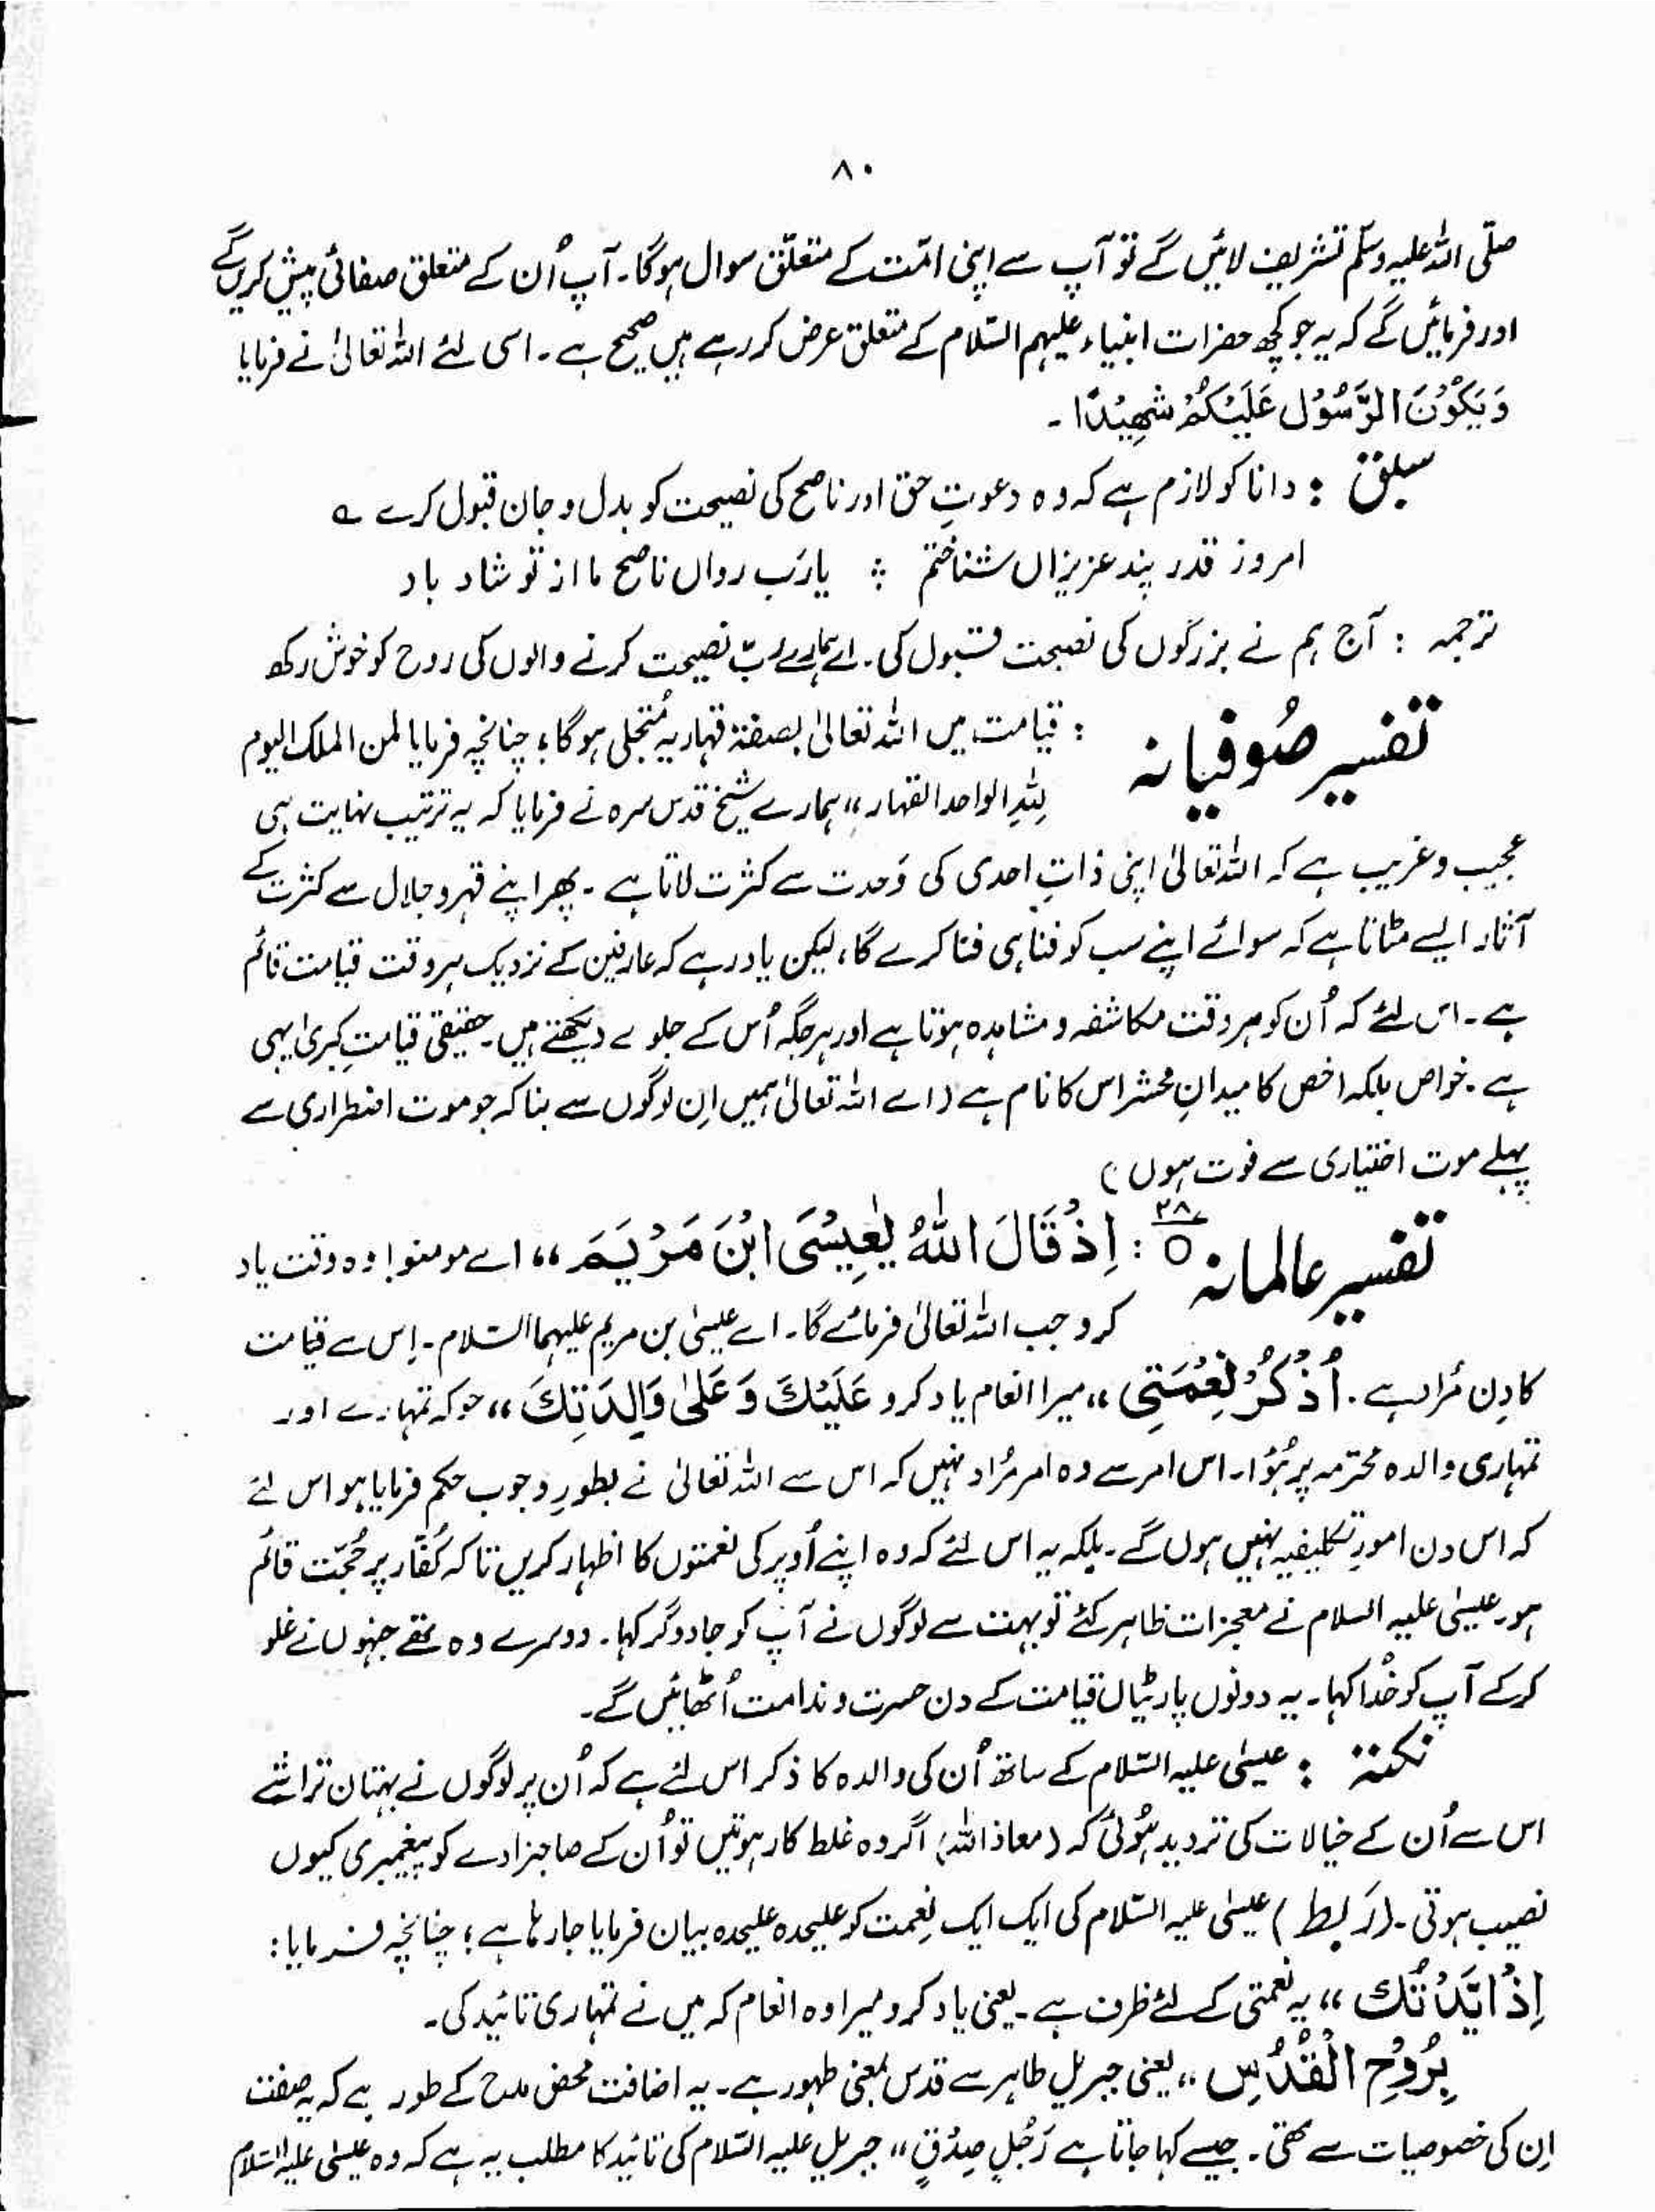 ۸۰
صلّی اللہ علیہ وسلّم تشریف لائیں گے تو آپ سے اپنی امّت کے متعلّق سوال ہوگا۔ آپ اُن کے متعلق صفائی پیش کریں گے
اور فرمائیں گے کہ یہ جو کچھ حضرات انبیاء علیہم السّلام کے متعلق عرض کر رہے ہیں صحیح ہے۔ اسی لئے اللہ تعالیٰ نے فرمایا
وَیَکُوْنَ الرَّسُوْل عَلَیْکُمْ شَھِیْدًا۔
سبق : دانا کو لازم ہے کہ وہ دعوتِ حق اور ناصح کی نصیحت کو بدل و جان قبول کرے ؎
امروز قدر پند عزیزاں شناختم ؞ یارَب رواں ناصح ما از تو شاد باد
ترجمہ : آج ہم نے بزرگوں کی نصیحت قبول کی۔ اے ہمارے ربّ نصیحت کرنے والوں کی روح کو خوش رکھ
تفسیر صُوفیانہ : قیامت میں اللہ تعالیٰ بصفۃ قہاریہ مُتجلی ہوگا؛ چنانچہ فرمایا لمن الملک الیوم
لِلّٰہِ الواحد القہار،، ہمارے شیخ قدس سرہ نے فرمایا کہ یہ ترتیب نہایت ہی
عجیب و غریب ہے کہ اللہ تعالیٰ اپنی ذاتِ احدی کی وَحدت سے کثرت لاتا ہے۔ پھر اپنے قہر و جلال سے کثرت کے
آثار ایسے مٹاتا ہے کہ سوائے اپنے سب کو فنا ہی فنا کرے گا، لیکن یاد رہے کہ عارفین کے نزدیک ہر وقت قیامت قائم
ہے۔ اس لئے کہ اُن کو ہر وقت مکاشفہ و مشاہدہ ہوتا ہے اور ہر جگہ اُس کے جلوے دیکھتے ہیں۔ حقیقی قیامتِ کبریٰ یہی
ہے۔ خواص بلکہ اخص کا میدانِ محشر اس کا نام ہے (اے اللہ تعالیٰ ہمیں اِن لوگوں سے بنا کہ جو موت اضطراری سے
پہلے موت اختیاری سے فوت ہوں)
تفسیر عالمانہ ○ : اِذْ قَالَ اللّٰہُ یٰعِیْسَی ابْنَ مَرْیَمَ،، اے مومنو! وہ وقت یاد
کرو جب اللہ تعالیٰ فرمائے گا۔ اے عیسیٰ بن مریم علیہما السّلام۔ اِس سے قیامت
کا دِن مُراد ہے۔ اُذْکُرْ نِعْمَتِی،، میرا انعام یاد کرو عَلَیْکَ وَ عَلیٰ وَالِدَتِکَ،، جو کہ تمہارے اور
تمہاری والدہ محترمہ پر ہُوا۔ اس امر سے وہ امر مُراد نہیں کہ اس سے اللہ تعالیٰ نے بطورِ وجوب حکم فرمایا ہو اس لئے
کہ اس دن امورِ تکلیفیہ نہیں ہوں گے۔ بلکہ یہ اس لئے کہ وہ اپنے اُوپر کی نعمتوں کا اظہار کریں تاکہ کُفّار پر حُجّت قائم
ہو۔ عیسیٰ علیہ السلام نے معجزات ظاہر کئے تو بہت سے لوگوں نے آپ کو جادوگر کہا۔ دوسرے وہ تھے جنہوں نے غلو
کرکے آپ کو خُدا کہا۔ یہ دونوں پارٹیاں قیامت کے دن حسرت و ندامت اُٹھائیں گے۔
نکتۃ : عیسیٰ علیہ السّلام کے ساتھ اُن کی والدہ کا ذکر اس لئے ہے کہ اُن پر لوگوں نے بہتان تراشے
اس سے اُن کے خیالات کی تردید ہُوئی کہ (معاذ اللہ) اگر وہ غلط کار ہوتیں تو اُن کے صاحبزادے کو پیغمبری کیوں
نصیب ہوتی۔ (رَبط) عیسیٰ علیہ السّلام کی ایک ایک نِعمت کو علیحدہ علیحدہ بیان فرمایا جا رہا ہے؛ چنانچہ فرمایا:
اِذْ اَیَّدْتُّک،، یہ نعمتی کے لئے ظرف ہے۔ یعنی یاد کرو میرا وہ انعام کہ میں نے تمہاری تائید کی۔
بِرُوْحِ الْقُدُسِ،، یعنی جبریل طاہر سے قدس بمعنی طہور ہے۔ یہ اضافت محض مدح کے طور ہے کہ یہ صفت
اِن کی خصوصیات سے تھی۔ جیسے کہا جاتا ہے رَجُلِ صِدْقٍ،، جبریل علیہ السّلام کی تائید کا مطلب یہ ہے کہ وہ عیسیٰ علیہ السّلام